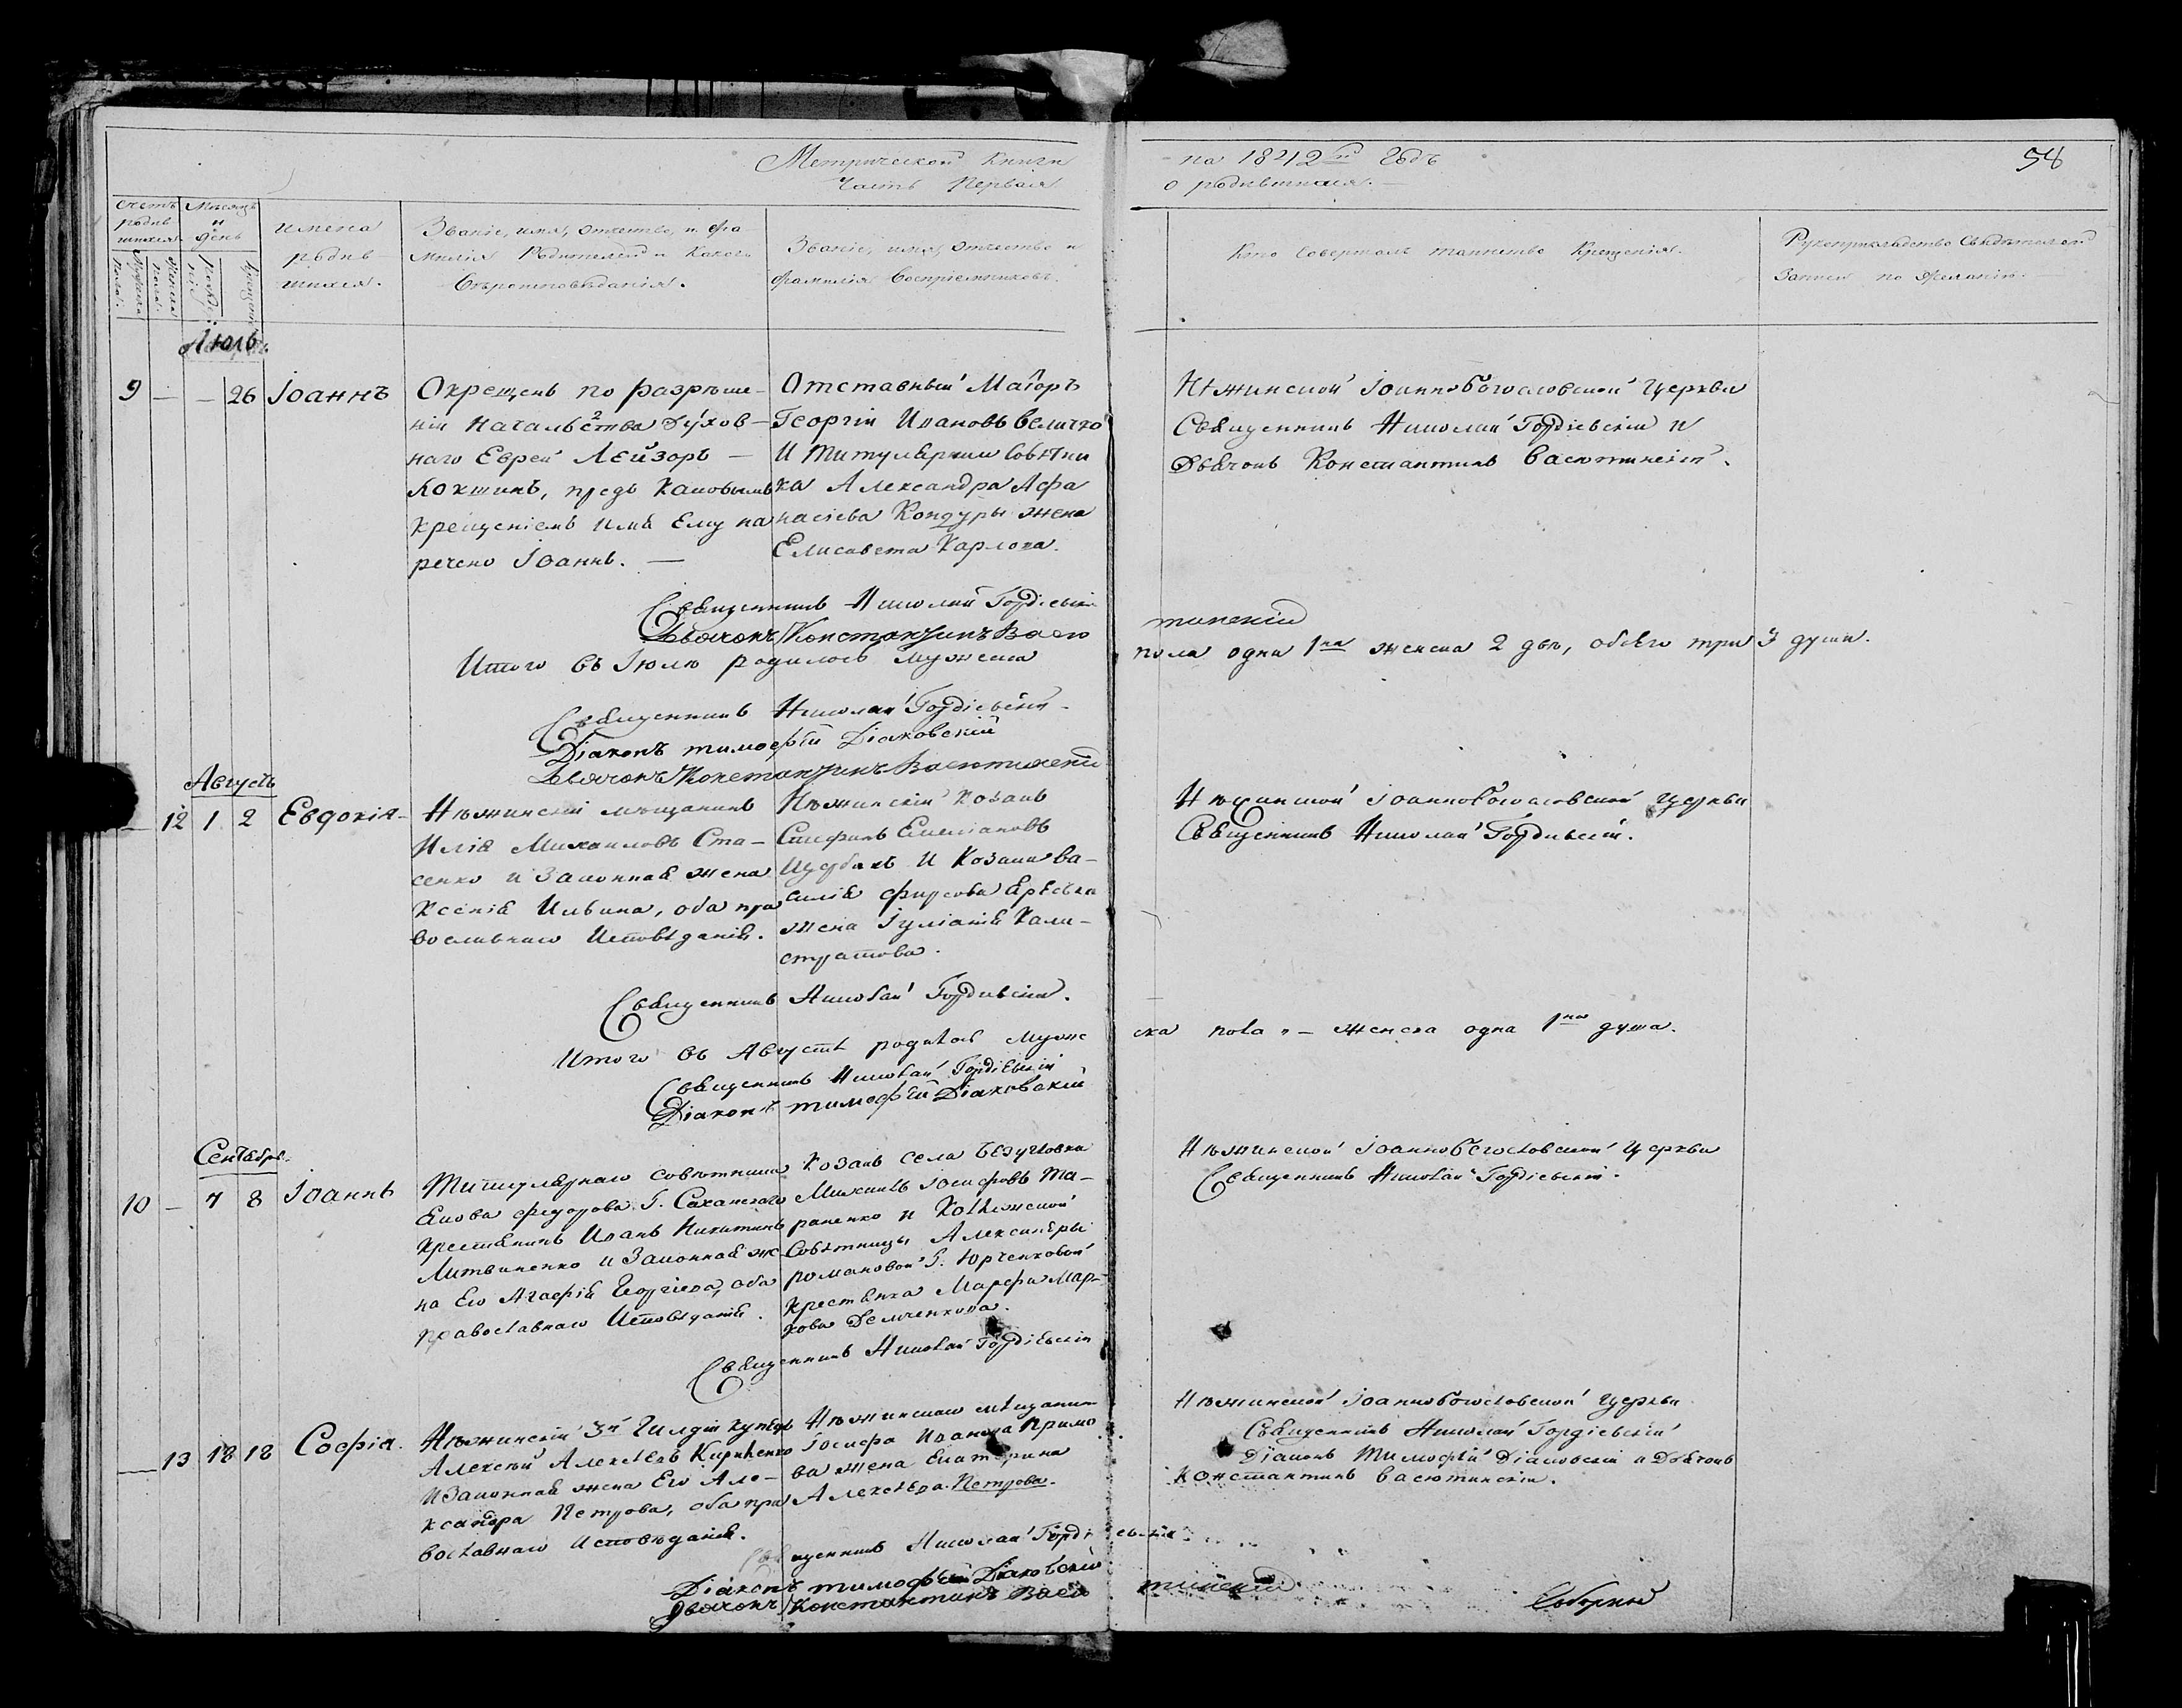 Метрической Книги
Часть Первая
на 1842й Годъ
о родившихся.
58
Счетъ родившихся.
Мужеска пола.
Женска пола.
Мѣсяцъ и день
Рожденія
Крещенія
Имена родившихся.
Званіе, имя, отчество, и фамилія Родителей и Какого Вѣроисповѣданія.
Званіе, имя, отчество и фамилія Воспріемниковъ.
Кто Совершалъ таинство Крещенія.
Рукоприкладство Свидѣтелей Записи по Желанію.
Июль.
9 — — 26 Іоаннъ
Окрещенъ по разрѣше-
ніи Начальства Духов-
наго Еврей Лейзоръ —
Кокшинъ, предъ Каковымъ
Крещеніемъ Имя Ему на
речено Іоаннъ. —
Отставный Маіоръ
Георгій Ивановъ Величко
И Титулярнаи Совѣтни
ка Александра Афа
насіева Кондуры жена
Елисавета Карлова.
Нѣжинской Іоаннобогословской Церкви
Священникъ Николай Гордіевскій и
Дьячокъ Константинъ Васютинскій.
Священникъ Николай Гордіевскій
Дьячокъ Константинъ Васю
тинскій
Итого въ Іюлю родилось Мужеска
пола одна 1на женска 2 двѣ, обѣго три 3 души.
Священникъ Николай Гордіевскій
Діаконъ тимофѣй Діаковскій
Дьячокъ Константинъ Васютинскій
Августъ
— 12 1 2 Евдокія-
Нѣжинскій мѣщанинъ
Илія Михаиловъ Ста-
сенко и Законная жена
Ксенія Ильина, оба пра
вославнаго Исповѣданія.
Нѣжинскій Козакъ
Стефанъ Емеліановъ
Щербакъ И Козака Ва-
силія фирсова
жена Іуліанія Кали-
стратова.
Нѣжинской Іоаннобогословской Церкви
Священникъ Николай Гордіевскій.
Священникъ Николай Гордіевскій.
Итого въ Августѣ родилось Муже
ска пола „ — женска одна 1на душа.
Священникъ Николай Гордіевскій
Діаконъ тимофѣй Діаковскій
Сентябрь.
10 — 7 8 Іоаннъ
Титулярнаго совѣтника
Якова федорова Г. Саханскаго
Крестьянинъ Иванъ Никитинъ
Литвиненко и Законная же-
на Его Агафія Георгіева, оба
православнаго Исповѣданія.
Козакъ села Безугловки
Михаилъ Іосифовъ Та-
раненко и Колѣжской
Совѣтницы Александры
романовой Г. Юрченковой
Крестьянка Марфа Мар-
кова Демченкова.
Нѣжинской Іоаннобогословской Церкви
Священникъ Николай Гордіевскій.
Священникъ Николай Гордіевскій
— 13 18 18 Софія.
Нѣжинскій 3й Гилдіи купецъ
Алексѣй Алексѣевъ Кириченко
И Законная жена Его Але-
ксандра Петрова, оба пра
вославнаго Исповѣданія.
Нѣжинскаго мѣщанина
Іосифа Иванова Примо
ва жена Екатерина
Алексѣева Петрова.
Нѣжинской Іоаннобогословской Церкви
Священникъ Николай Гордіевскій
Діаконъ Тимофѣй Діаковскій и Дьячокъ
Константинъ Васютинскій.
Священникъ Николай Гордіевскій
Діаконъ тимофѣй Діаковскій
Дьячокъ Константинъ Васю
тинскій
Соборной